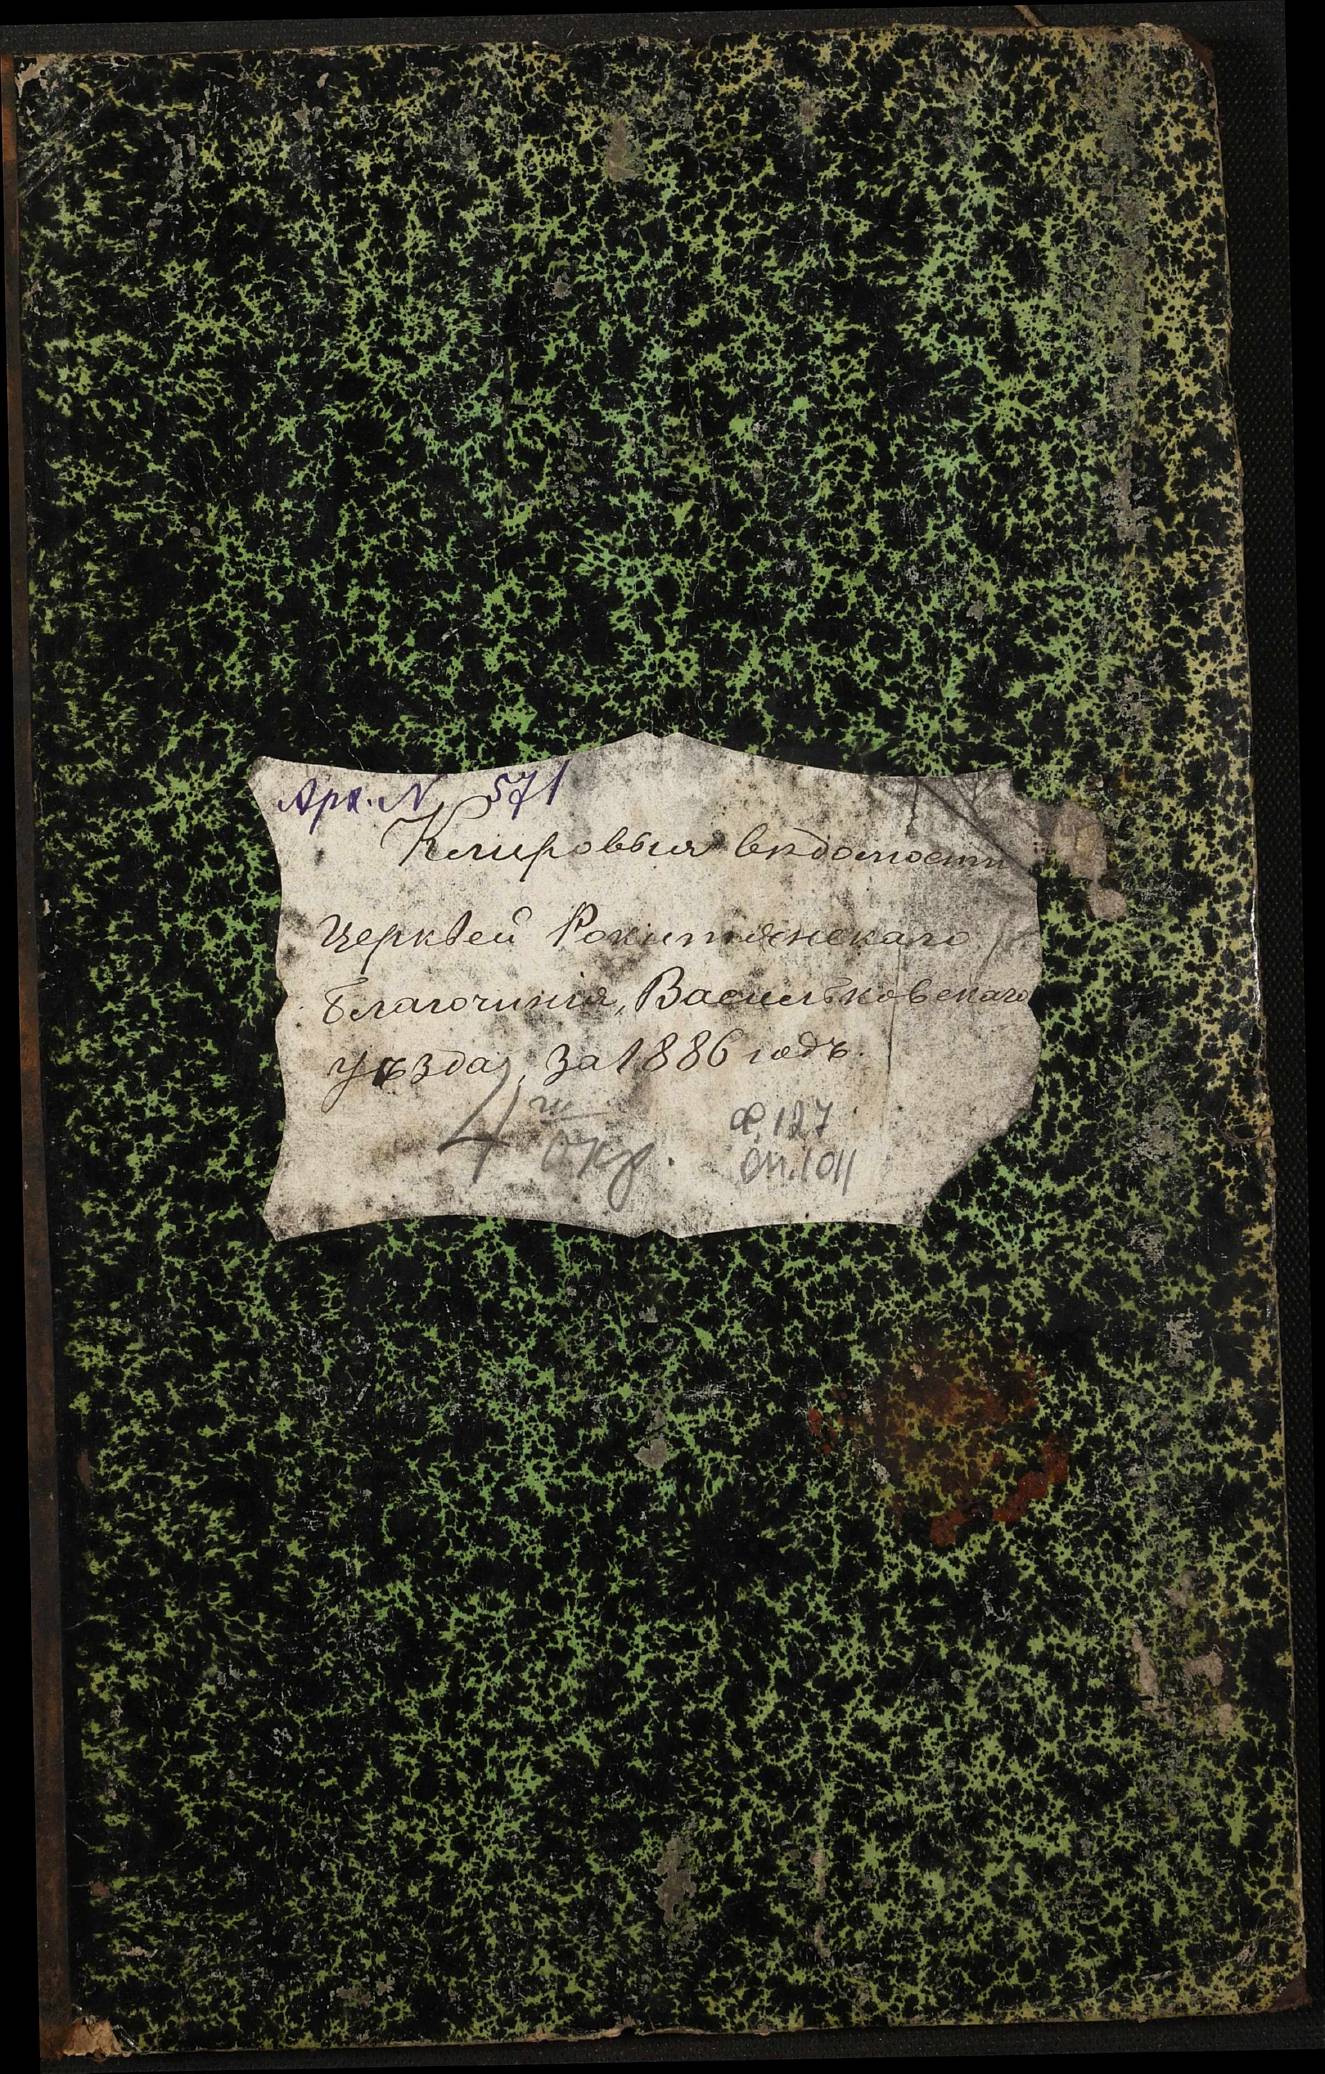 Арх. N 571
Клировыя вѣдомости
Церквей Рокитянскаго
Благочинія, Васильковскаго
уѣзда, за 1886 годъ.
4 го окр.
Ф. 127
Оп. 1011